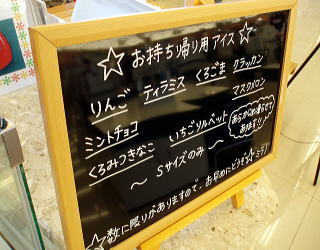 ☆お持ち帰り用アイス☆
りんご ティラミス くろごま クラッカン
ミントチョコ いちごソルベット マスクメロン
くるみつきなこ
～ Sサイズのみ ～
☆数に限りがありますので、お早めにどうぞ